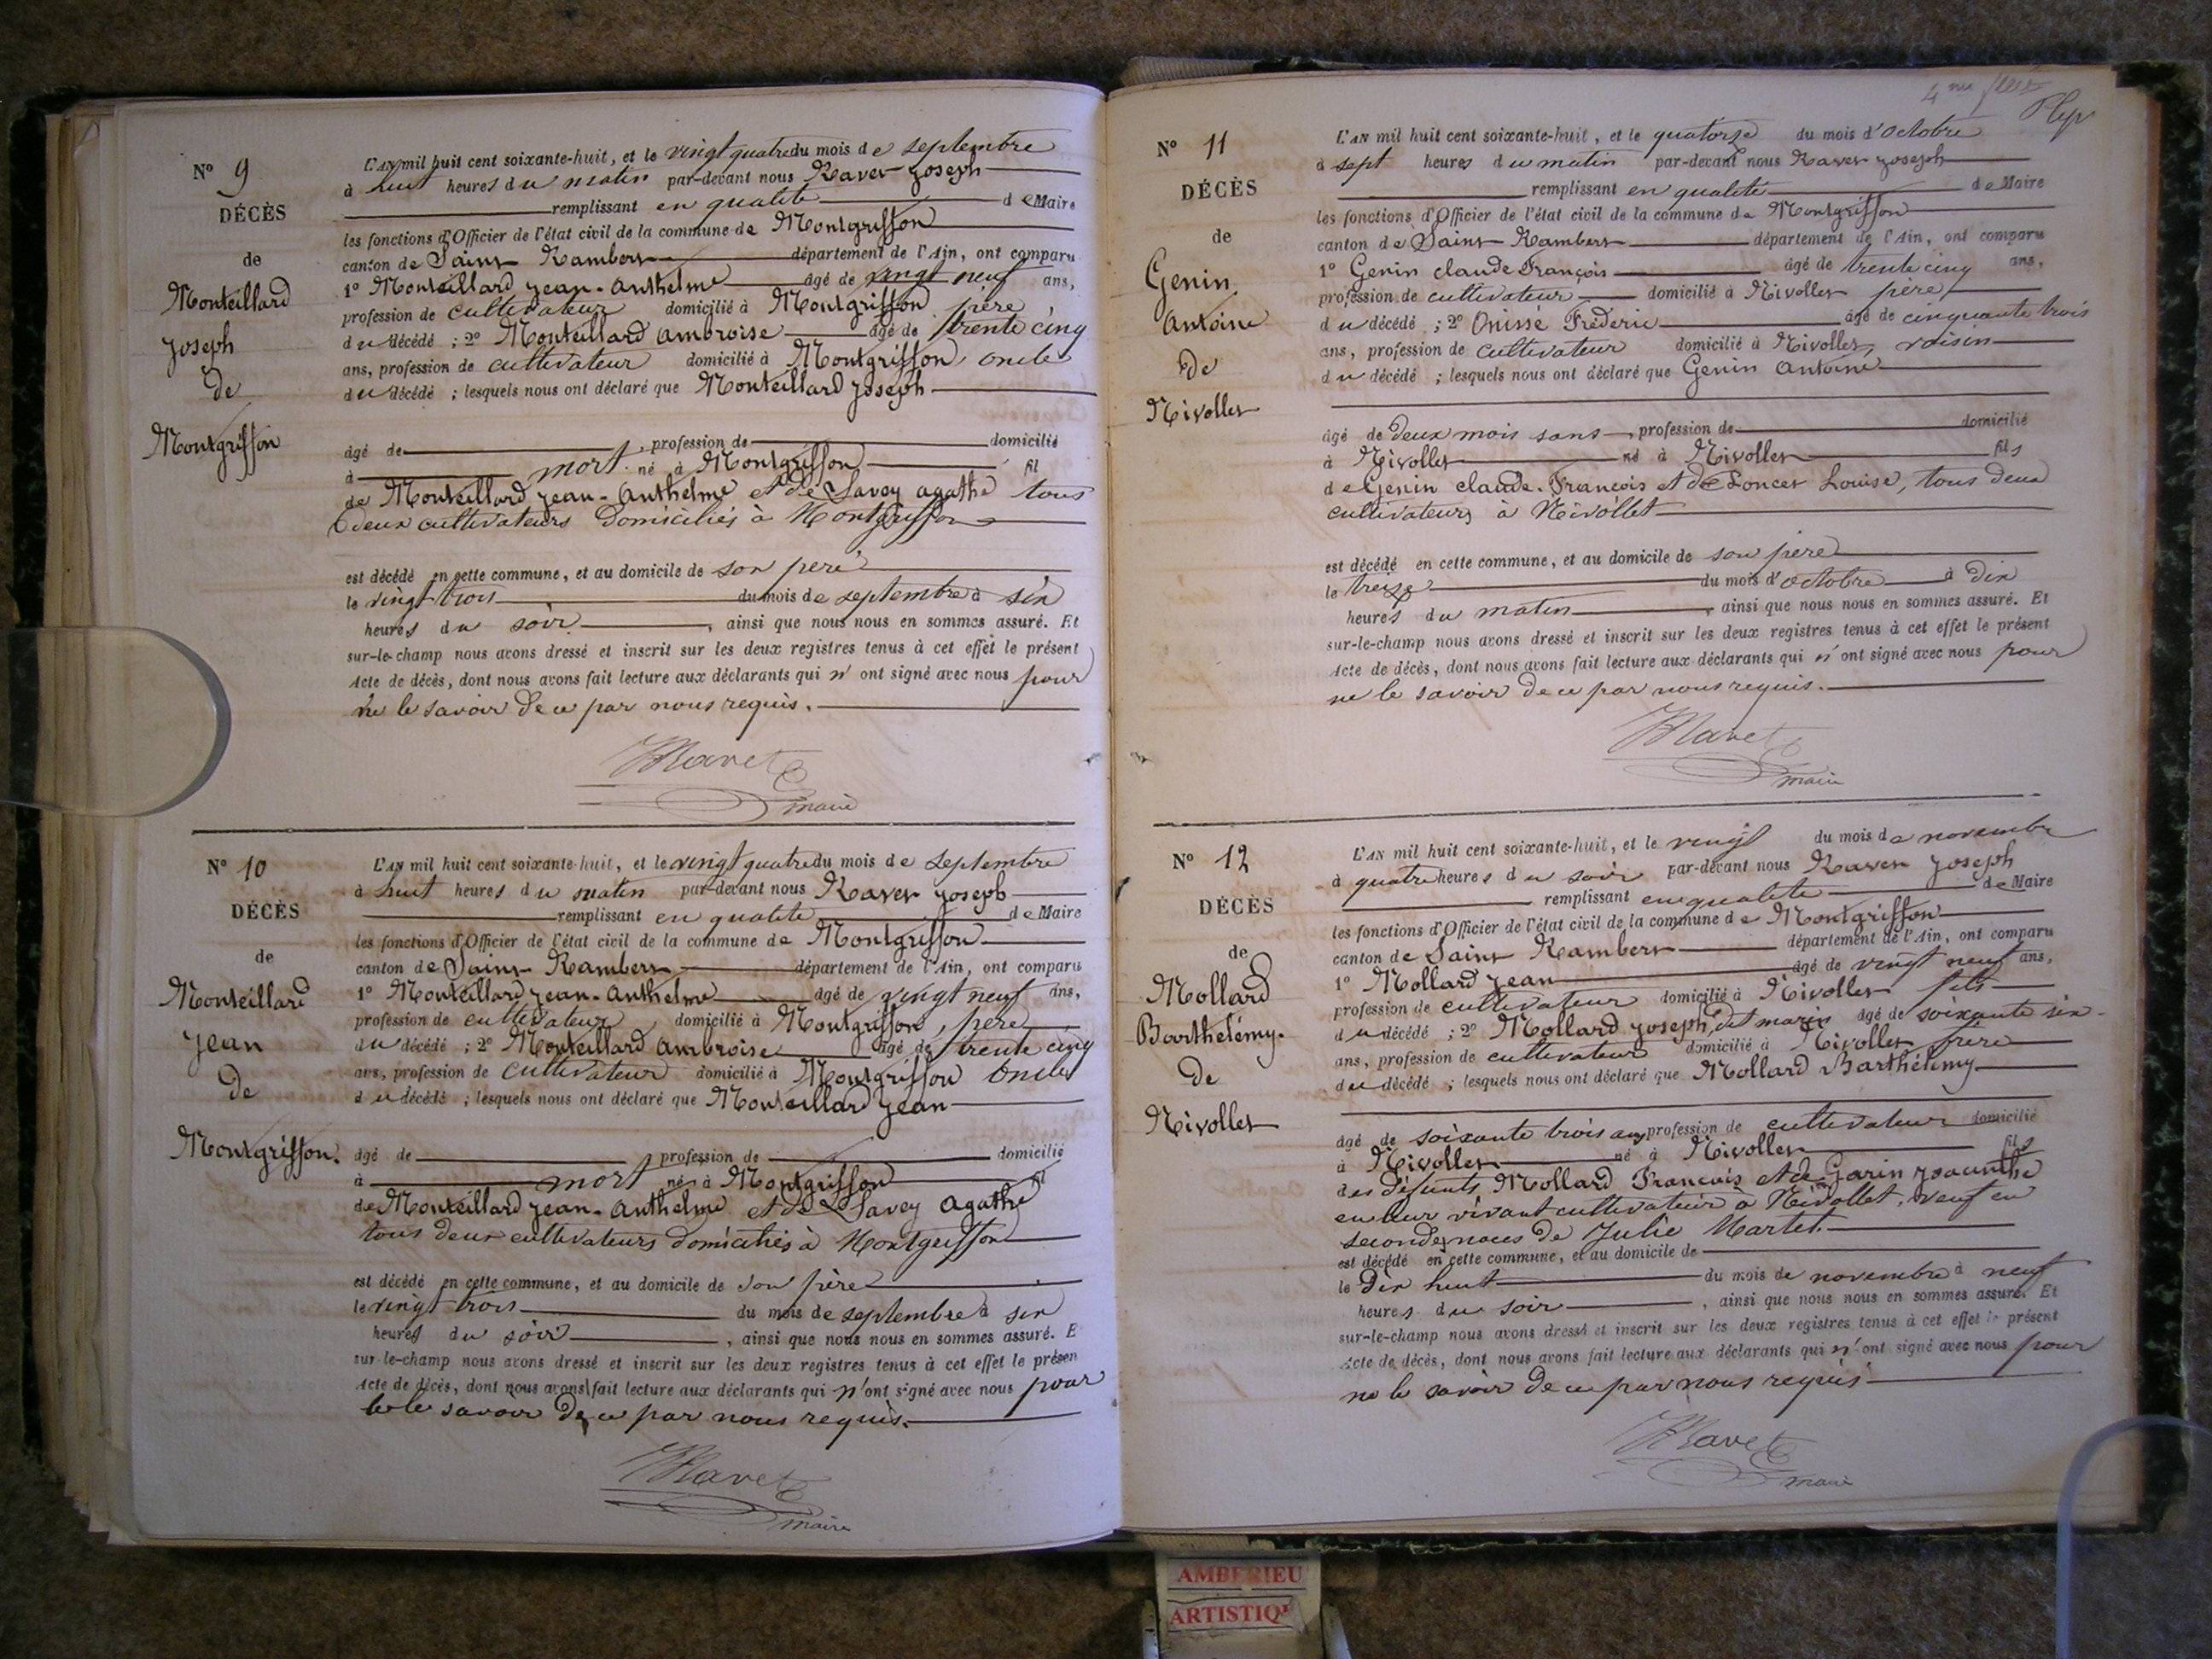 N° 9
DÉCÈS
de
Monteillard
Joseph
de
Montgriffon
L'AN mil huit cent soixante-huit, et le vingt quatre du mois de septembre
à huit heures du matin par-devant nous Ravet Joseph
remplissant en qualité de Maire
les fonctions d'Officier de l'état civil de la commune de Montgriffon
canton de Saint Rambert département de l'Ain, ont comparu
1° Monteillard Jean-Anthelme âgé de vingt neuf ans,
profession de cultivateur domicilié à Montgriffon père
du décédé ; 2° Monteillard Ambroise âgé de trente cinq
ans, profession de cultivateur domicilié à Montgriffon, oncle
du décédé ; lesquels nous ont déclaré que Monteillard Joseph
âgé de , profession de domicilié
à mort né à Montgriffon fil
de Monteillard Jean-Anthelme et de Savey Agathe tous
deux cultivateurs domiciliés à Montgriffon
est décédé en cette commune, et au domicile de son père
le vingt trois du mois de septembre à six
heures du soir , ainsi que nous nous en sommes assuré. Et
sur-le-champ nous avons dressé et inscrit sur les deux registres tenus à cet effet le présent
Acte de décès, dont nous avons fait lecture aux déclarants qui n'ont signé avec nous pour
ne le savoir de ce par nous requis.
Ravet
maire
N° 10
DÉCÈS
de
Monteillard
Jean
de
Montgriffon.
L'AN mil huit cent soixante-huit, et le vingt quatre du mois de septembre
à huit heures du matin par-devant nous Ravet Joseph
remplissant en qualité de Maire
les fonctions d'Officier de l'état civil de la commune de Montgriffon
canton de Saint Rambert département de l'Ain, ont comparu
1° Monteillard Jean-Anthelme âgé de vingt neuf ans,
profession de cultivateur domicilié à Montgriffon, père
du décédé ; 2° Monteillard Ambroise âgé de trente cinq
ans, profession de cultivateur domicilié à Montgriffon oncle
du décédé ; lesquels nous ont déclaré que Monteillard Jean
âgé de profession de domicilié
à mort né à Montgriffon fil
de Monteillard Jean-Anthelme et de Savey Agathe
tous deux cultivateurs domiciliés à Montgriffon
est décédé en cette commune, et au domicile de son père
le vingt trois du mois de septembre à six
heures du soir , ainsi que nous nous en sommes assuré. E
sur-le-champ nous avons dressé et inscrit sur les deux registres tenus à cet effet le présen
Acte de décès, dont nous avons fait lecture aux déclarants qui n'ont signé avec nous pour
le savoir de ce par nous requis.
Ravet
maire
4me
N° 11
DÉCÈS
de
Genin
Antoine
de
Nivollet
L'AN mil huit cent soixante-huit, et le quatorze du mois d'octobre
à sept heures du matin par-devant nous Ravet Joseph
remplissant en qualité de Maire
les fonctions d'Officier de l'état civil de la commune de Montgriffon
canton de Saint Rambert département de l'Ain, ont comparu
1° Genin Claude François âgé de trente cinq ans,
profession de cultivateur domicilié à Nivollet père
du décédé ; 2° Onisse Frederic âgé de cinquante trois
ans, profession de cultivateur domicilié à Nivollet, voisin
du décédé ; lesquels nous ont déclaré que Genin Antoine
âgé de deux mois sans , profession de domicilié
à Nivollet né à Nivollet fils
de Genin Claude-François et de Poncet Louise, tous deux
cultivateurs à Nivollet
est décédé en cette commune, et au domicile de son père
le treize du mois d'octobre à dix
heures du matin , ainsi que nous nous en sommes assuré. Et
sur-le-champ nous avons dressé et inscrit sur les deux registres tenus à cet effet le présent
Acte de décès, dont nous avons fait lecture aux déclarants qui n'ont signé avec nous pour
ne le savoir de ce par nous requis.
Ravet
maire
N° 12
DÉCÈS
de
Mollard
Barthélémy.
de
Nivollet
L'AN mil huit cent soixante-huit, et le vingt du mois de novembre
à quatre heures du soir par-devant nous Ravet Joseph
remplissant en qualité de Maire
les fonctions d'Officier de l'état civil de la commune de Montgriffon
canton de Saint Rambert département de l'Ain, ont comparu
1° Mollard Jean âgé de vingt neuf ans,
profession de cultivateur domicilié à Nivollet fils
du décédé ; 2° Mollard Joseph, dit marin âgé de soixante six
ans, profession de cultivateur domicilié à Nivollet frère
du décédé ; lesquels nous ont déclaré que Mollard Barthélémy
âgé de soixante trois ans profession de cultivateur domicilié
à Nivollet né à Nivollet fils
des défunts Mollard François et de Garin Jacinthe
en leur vivant cultivateur à Nivollet. veuf en
secondes noces de Julie Martet.
est décédé en cette commune, et au domicile de
le dix huit du mois de novembre à neuf
heures du soir , ainsi que nous nous en sommes assuré. Et
sur-le-champ nous avons dressé et inscrit sur les deux registres tenus à cet effet le présent
Acte de décès, dont nous avons fait lecture aux déclarants qui n'ont signé avec nous pour
ne le savoir de ce par nous requis
Ravet
maire
AMBERIEU
ARTISTIQ